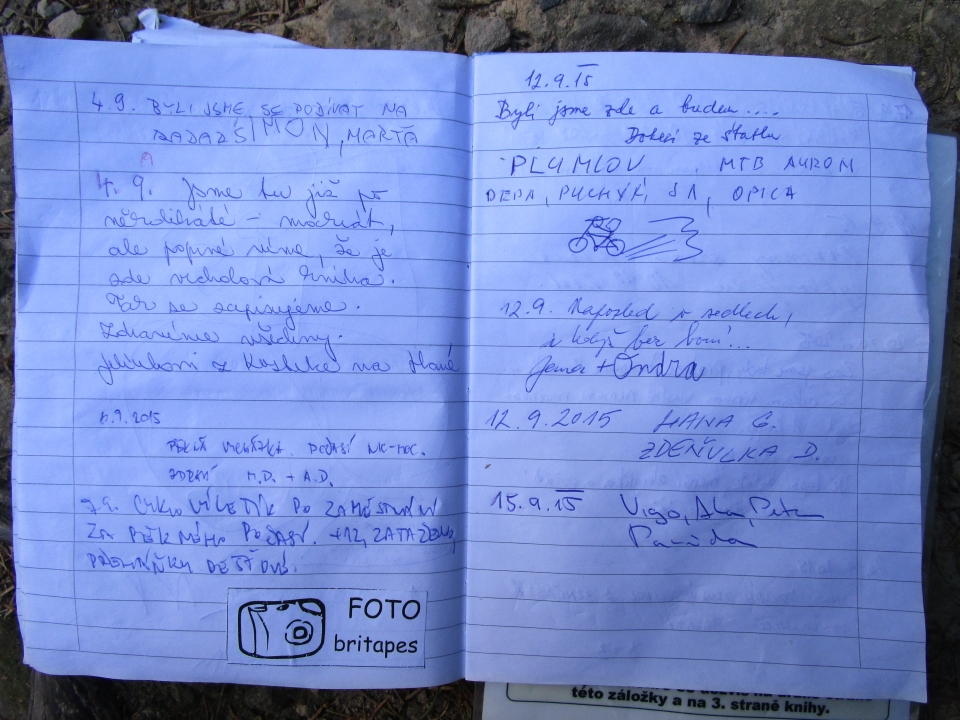 4.9. BYLI JSME SE PODÍVAT NA
ZADAZ ŠIMON, MARTA
4. 9. Jsme tu již po
několikáté –
ale poprvé víme, že je
zde vrcholová knížka.
Tak se zapisujeme.
Zdravíme všechny.
z Kostelce na Hané
6.9.2015
PĚKNÁ VYCHÁZKA. POČASÍ NIC-MOC.
ZDRAVÍ M.D. + A.D.
7.9. CYKLOVÝLETÍK PO ZAMĚSTNÁNÍ
ZA PĚKNÉHO POČASÍ. +12, ZATAŽENO,
DEŠŤOVÉ.
FOTO
britapes
12.9.15
Byli jsme zde a budem....
Dobečí ze Statku
PLUMLOV MTB AUROM
DEPA, PUCHÝŘ, SA, OPICA
12.9. Naposled v sedlech,
i když bez koní...
+ Ondra
12.9.2015 HANA G.
ZDEŇULKA D.
15.9.15 Vigo, Ala, Petr
této záložky a na 3. straně knihy.